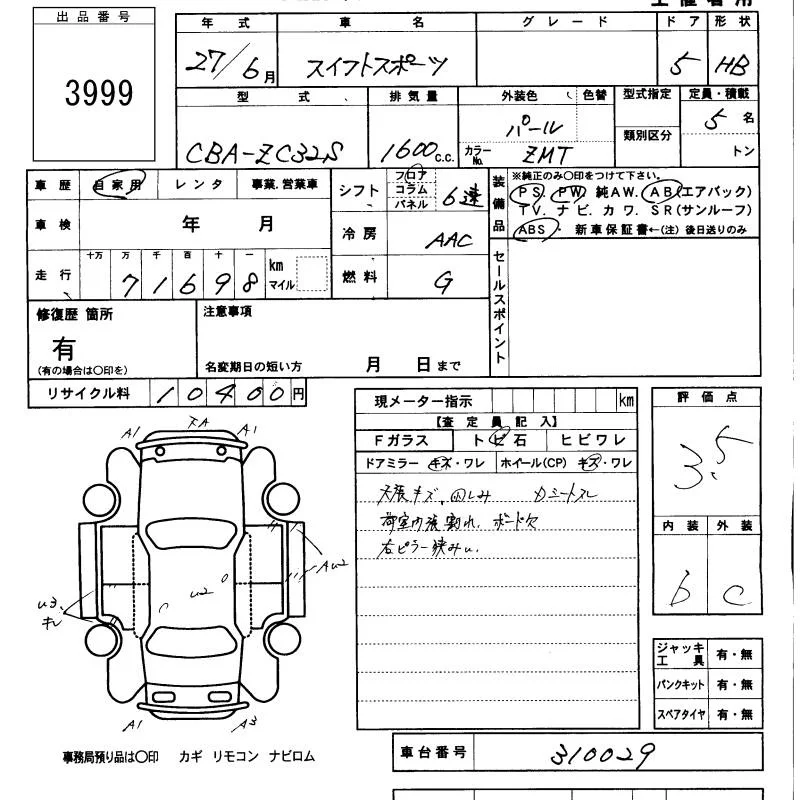 出品番号
3999
年式 車名 グレード ドア 形状
27/6月 スイフトスポーツ 5 HB
型式 排気量 外装色 色替 型式指定 定員・積載
CBA-ZC32S 1600c.c. パール カラーNo. ZMT 類別区分 5名 トン
車歴 自家用 レンタ 事業.営業車
車検 年 月
走行 十万 万 千 百 十 一 km マイル
71698
シフト フロア コラム パネル 6速
冷房 AAC
燃料 G
装備品
※純正のみ〇印をつけて下さい。
PS. PW 純AW. AB(エアバック)
TV. ナビ. カワ. SR(サンルーフ)
ABS. 新車保証書←(注)後日送りのみ
セールスポイント
修復歴 箇所
有
(有の場合は〇印を)
注意事項
名変期日の短い方 月 日まで
リサイクル料 10400円
現メーター指示 km
【査定員記入】
Fガラス トビ石 ヒビワレ
ドアミラー キズ・ワレ ホイール(CP) キズ・ワレ
天張キズ、凹しみ
荷室内張割れ、ボード欠
右ピラー狭みu.
評価点
3.5
内装 外装
b C
A1 A1
u3 キレ
u2
Au2
A1 A3
ジャッキ工具 有・無
パンクキット 有・無
スペアタイヤ 有・無
事務局預り品は〇印 カギ リモコン ナビロム
車台番号 310029